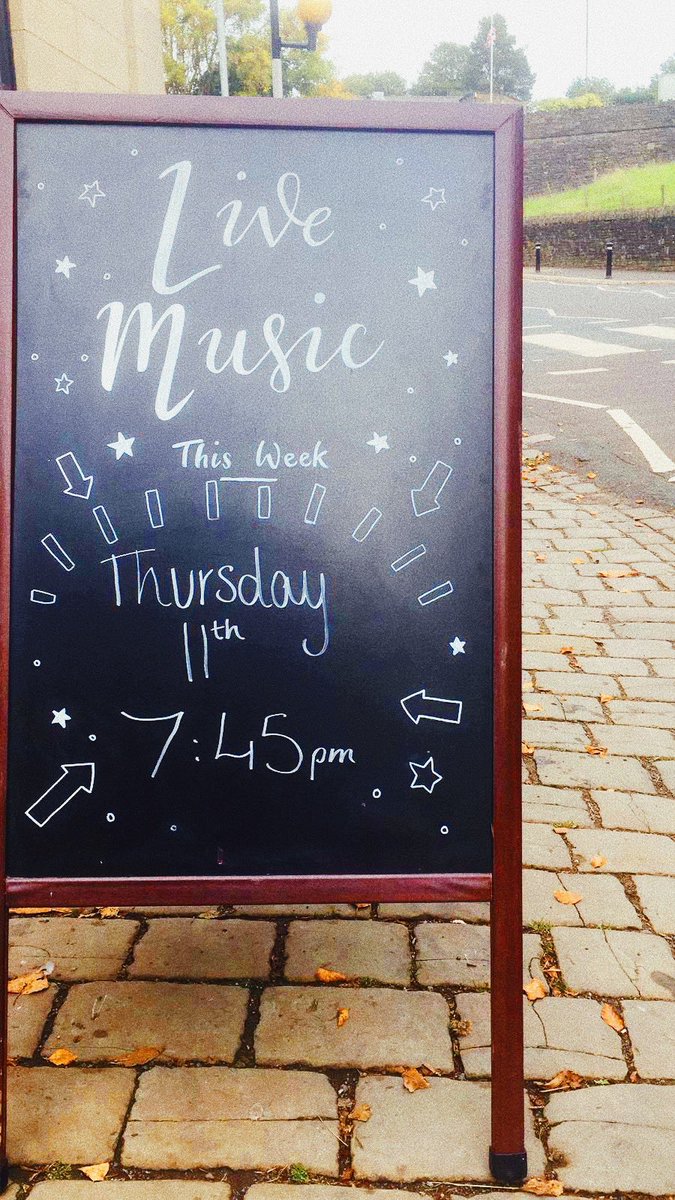 Live
Music
This Week
Thursday
11th
7:45pm